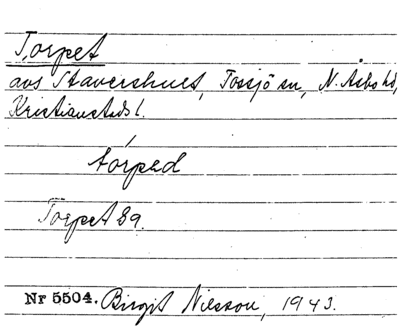 Torpet
avs Stavershult, Tossjö sn, N. Åsbo hd,
Kristianstads l.
tórpəd
Torpet Sg.
Nr 5504. Birgit Nilsson, 1943.